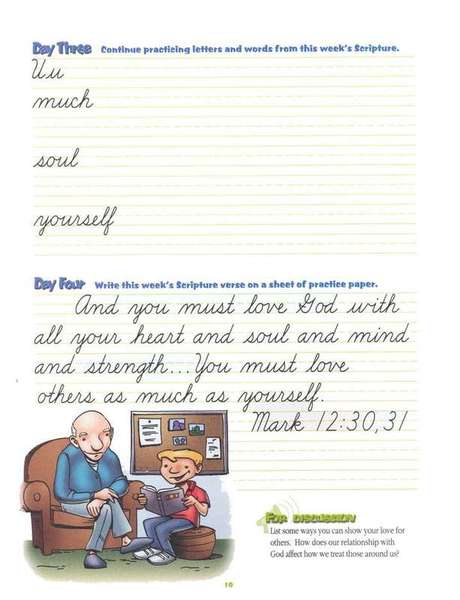 Day Three Continue practicing letters and words from this week's Scripture.
Uu
much
soul
yourself
Day Four Write this week's Scripture verse on a sheet of practice paper.
And you must love God with
all your heart and soul and mind
and strength...You must love
others as much as yourself.
Mark 12:30,31
For Discussion
List some ways you can show your love for
others. How does our relationship with
God affect how we treat those around us?
10